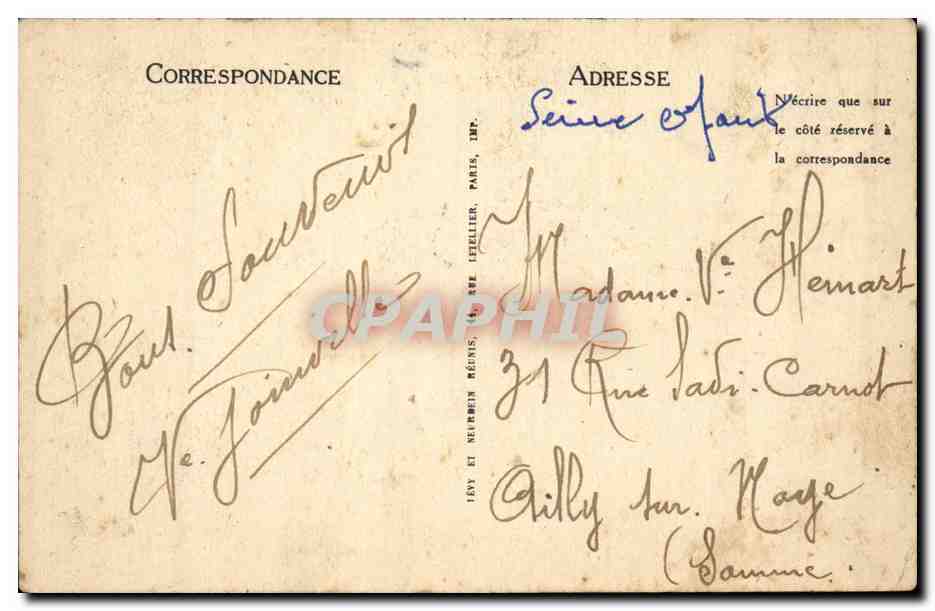 CORRESPONDANCE
Bons Souvenirs
Ve. Joinville
LÉVY ET NEURDEIN RÉUNIS, 44, RUE LETELLIER, PARIS, IMP.
ADRESSE
N'écrire que sur
le côté réservé à
la correspondance
Seine
Madame Ve Hémart
31 Rue Sadi-Carnot
Ailly sur Noye
(Somme.
CPAPHIL